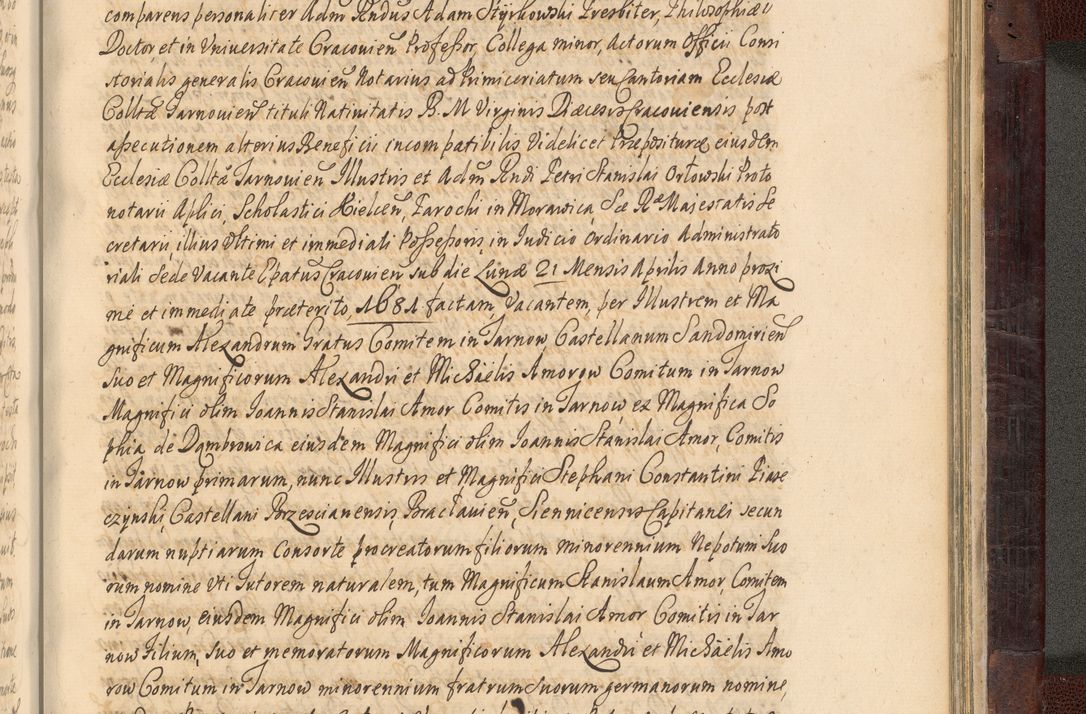 comparens personaliter Adm̃ Rñdus Adam Styrkowski Presbiter, Philosophiæ
Doctor, et in Vniuersitate Cracouieñ Professor, Collega minor, Actorum Officii Consi
storialis generalis Cracouieñ Notarius ad Primiceriatum seu Cantoriam Ecclesiæ
Colltæ Tarnouieñ tituli Natiuitatis B. M Virginis Diæcesis Cracouiensis post
assecutionem alterius Beneficii incompatibilis Videlicet Præpositure eiusdem
Ecclesiæ Colltæ Tarnouieñ Illustris et Adm̃ Rñdi Petri Stanislai Orłowski Proto
notarii Aplici, Scholastici Kielceñ, Parochi in Morawica, Sæ Ræ Maiestatis Se
cretarii, illius Vltimi et immediati Possessoris, in Iudicio Ordinario Administrato
riali Sede Vacante Epatus Cracouieñ sub die Lunæ 21 Mensis Aprilis Anno proxi
mé et immediate præterito, 1681 factam, Vacantem, per Illustrem et Ma
gnificum Alexandrum Gratus Comitem in Tarnow Castellanum Sandomirieñ
Suo et Magnificorum Alexandri et Michaëlis Amorow Comitum in Tarnow
Magnifici olim Ioannis Stanislai Amor Comitis in Tarnow ex Magnifica So
phia de Dambrowica eiusdem Magnifici olim Ioannis Stanislai Amor, Comitis
in Tarnow primarum, nunc Illustris et Magnifici Stephani Constantini Piase
czynski, Castellani Brzescianensis, Bracłauieñ, Siennicensis Capitanei secun
darum nuptiarum Consorte procreatorum filiorum minorennium Nepotum Suo
rum nomine Vti Tutorem naturalem, tum Magnificum Stanislaum Amor, Comitem
in Tarnow, eiusdem Magnifici olim Ioannis Stanislai Amor Comitis in Tar
now Filium, Suo et memoratorum Magnificorum Alexandri et Michaëlis Amo
row Comitum in Tarnow minorennium fratrum suorum germanorum nomine,